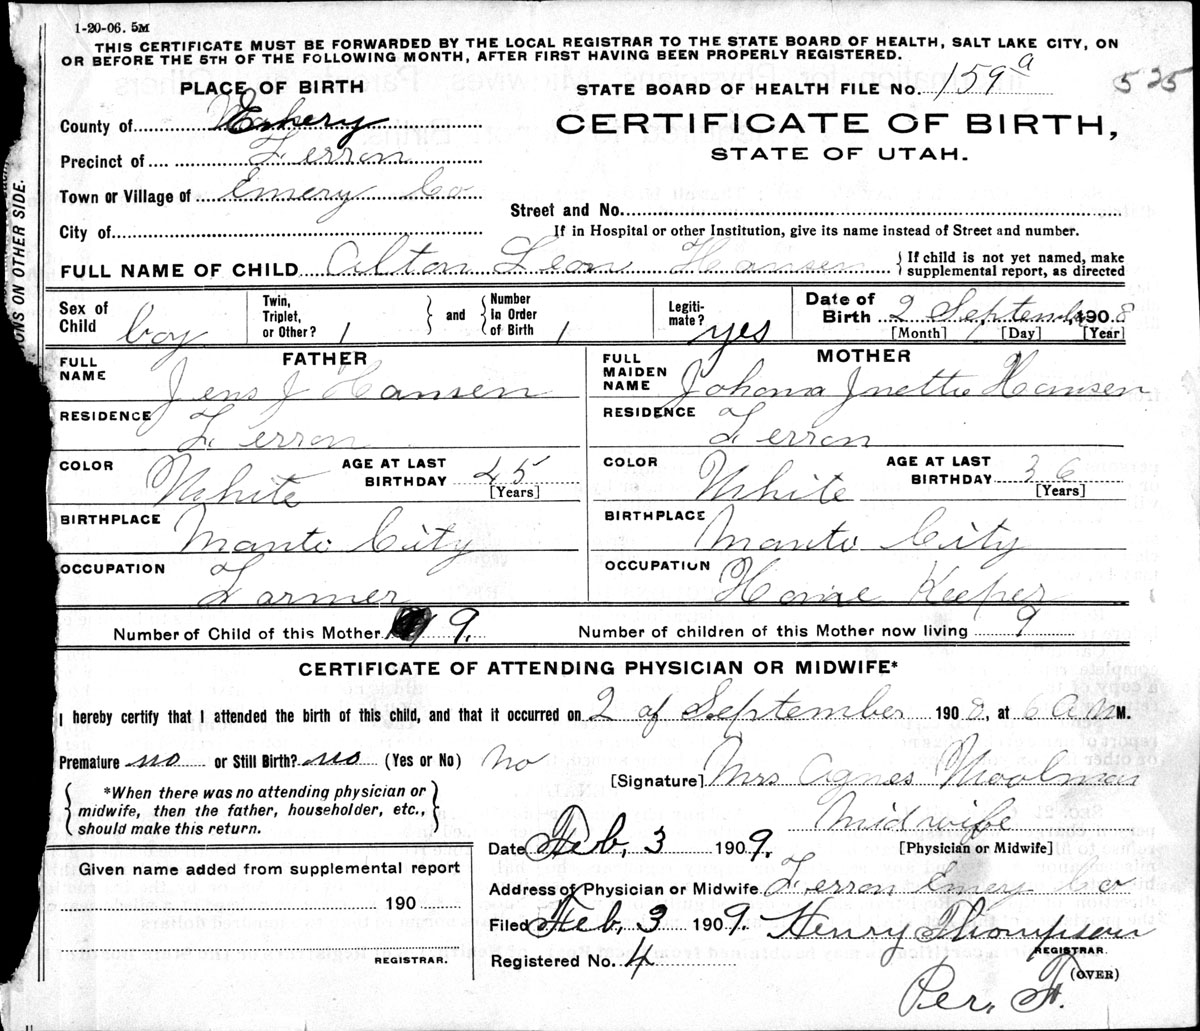 1-20-06. 5M
THIS CERTIFICATE MUST BE FORWARDED BY THE LOCAL REGISTRAR TO THE STATE BOARD OF HEALTH, SALT LAKE CITY, ON
OR BEFORE THE 5TH OF THE FOLLOWING MONTH, AFTER FIRST HAVING BEEN PROPERLY REGISTERED.
PLACE OF BIRTH
STATE BOARD OF HEALTH FILE No. 159a 525
County of Emery
CERTIFICATE OF BIRTH,
Precinct of Ferron
STATE OF UTAH.
Town or Village of Emery Co
Street and No.
City of
If in Hospital or other Institution, give its name instead of Street and number.
FULL NAME OF CHILD Alton Leon Hansen { If child is not yet named, make supplemental report, as directed
Sex of Child boy Twin, Triplet, or Other? 1 } and { Number In Order of Birth 1 Legiti-mate? yes Date of Birth 2 September, 1908
[Month] [Day] [Year]
FATHER MOTHER
FULL NAME Jens J Hansen FULL MAIDEN NAME Johana Jnettie Hansen
RESIDENCE Ferron RESIDENCE Ferron
COLOR White AGE AT LAST BIRTHDAY 45 [Years] COLOR White AGE AT LAST BIRTHDAY 36 [Years]
BIRTHPLACE Manti City BIRTHPLACE Manti City
OCCUPATION Farmer OCCUPATION Home Keeper
Number of Child of this Mother 9. Number of children of this Mother now living 9
CERTIFICATE OF ATTENDING PHYSICIAN OR MIDWIFE*
I hereby certify that I attended the birth of this child, and that it occurred on 2 of September 1908, at 6 A M M.
Premature no or Still Birth? no (Yes or No) no
[Signature] Mrs Agnes Moolman
{ *When there was no attending physician or midwife, then the father, householder, etc., should make this return. }
Midwife
Date Feb, 3 1909. [Physician or Midwife]
Given name added from supplemental report
Address of Physician or Midwife Ferron Emery Co
190
Filed Feb, 3 1909. Henry Thompson
REGISTRAR.
Registered No. 4
REGISTRAR.
(OVER)
Per. F.
ONS ON OTHER SIDE.